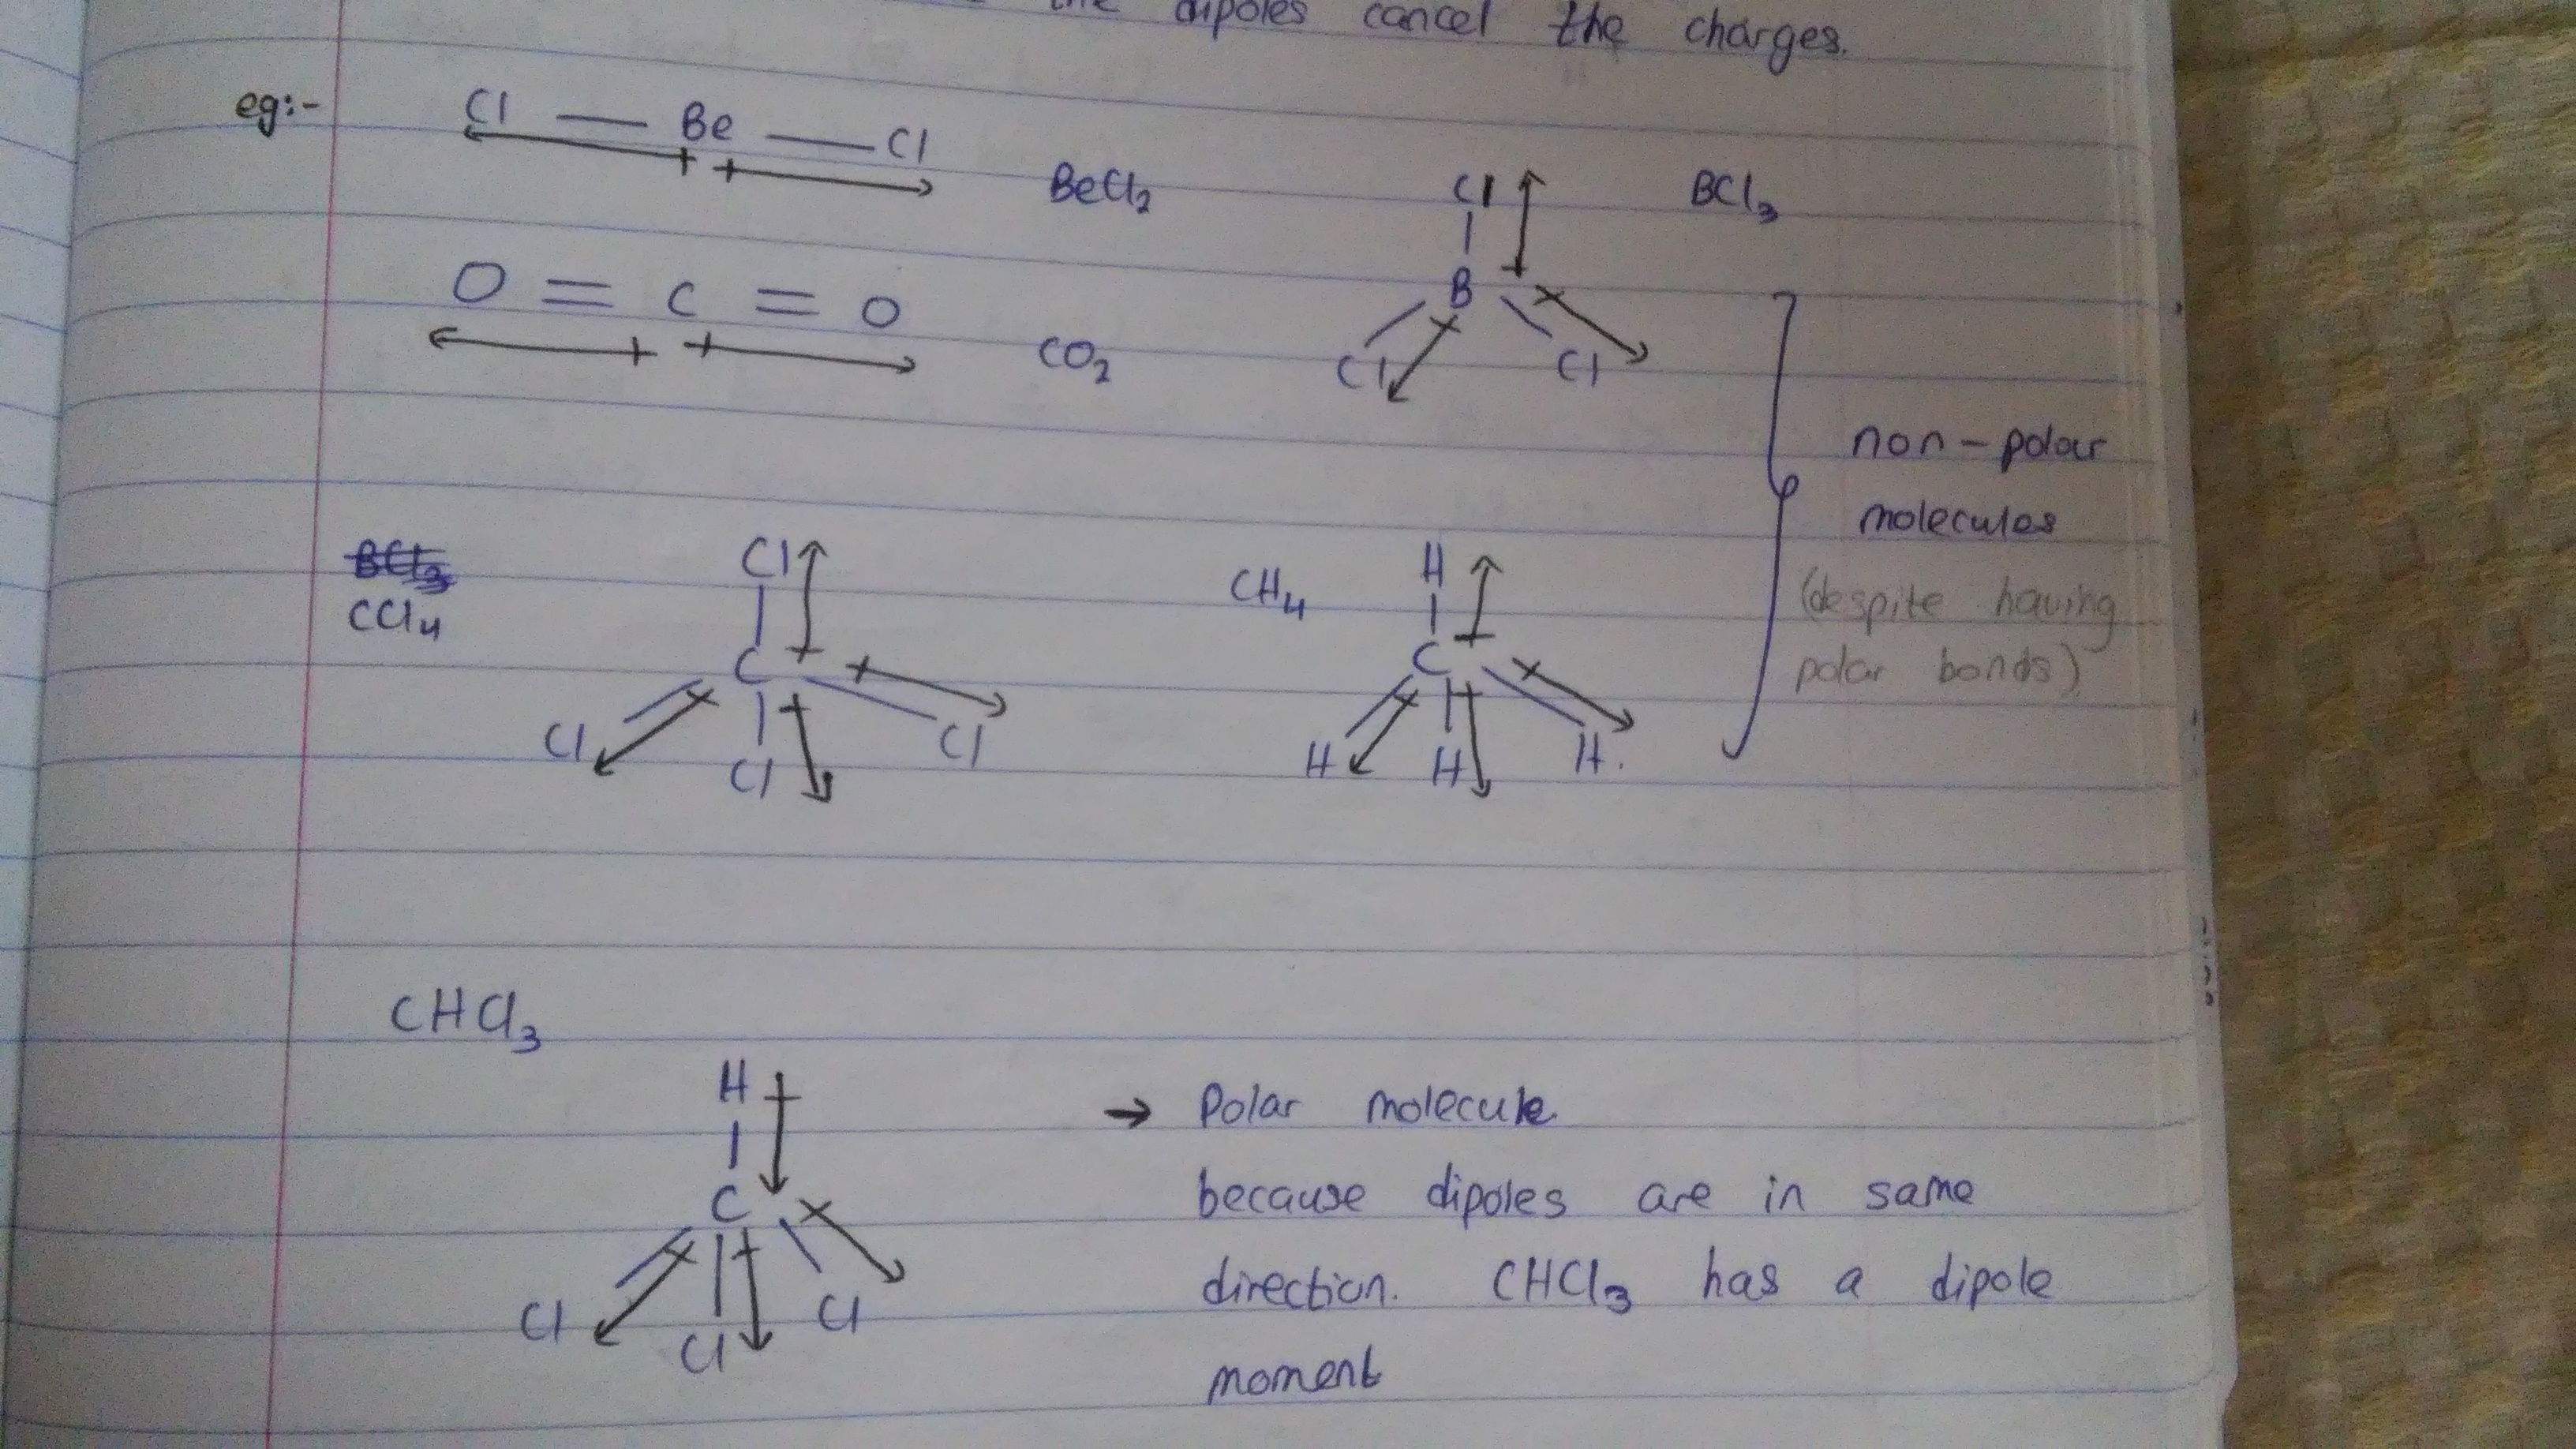 the dipoles cancel the charges.
eg:-
Cl — Be — Cl
BeCl₂
Cl
BCl₃
B
Cl Cl
O = C = O
CO₂
non-polar
molecules
(despite having
polar bonds)
BCl₃
CCl₄
Cl
C
Cl Cl Cl
CH₄
H
C
H H H.
CHCl₃
H
C
Cl Cl Cl
→ Polar molecule
because dipoles are in same
direction. CHCl₃ has a dipole
moment